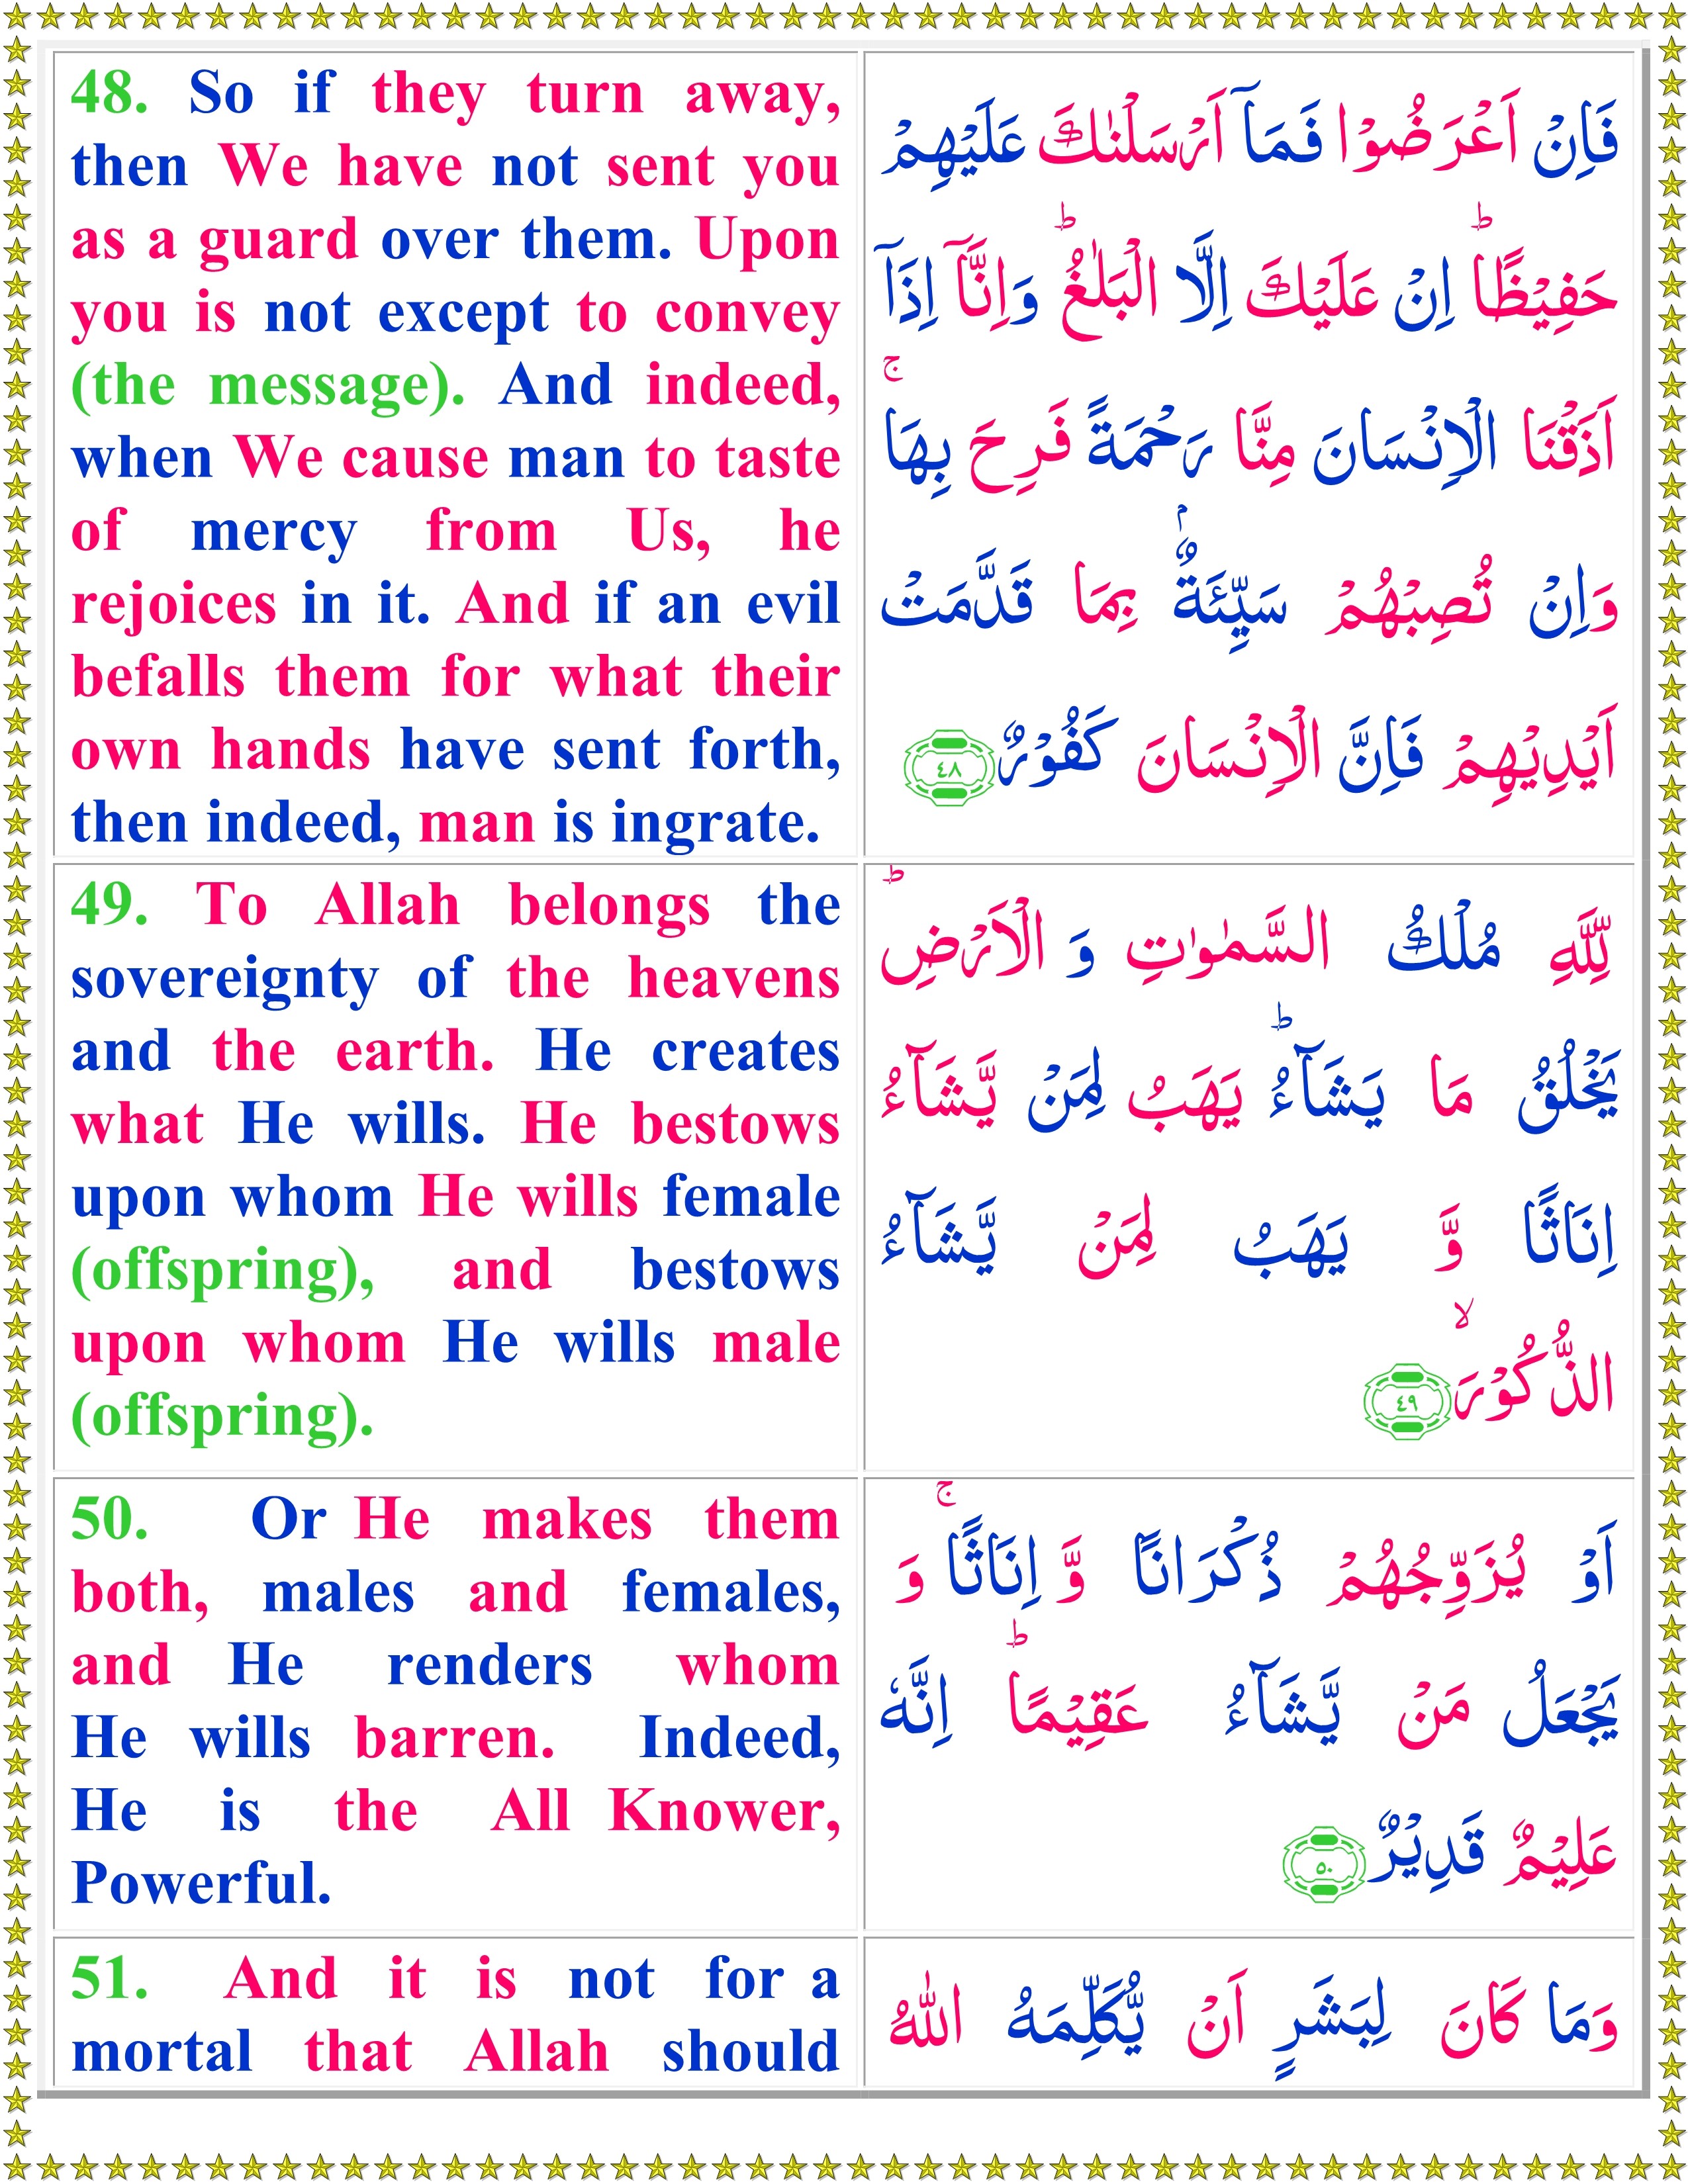 48. So if they turn away,
then We have not sent you
as a guard over them. Upon
you is not except to convey
(the message). And indeed,
when We cause man to taste
of mercy from Us, he
rejoices in it. And if an evil
befalls them for what their
own hands have sent forth,
then indeed, man is ingrate.
فَاِنْ اَعْرَضُوْا فَمَاۤ اَرْسَلْنٰكَ عَلَيْهِمْ
حَفِيْظًا ؕ اِنْ عَلَيْكَ اِلَّا الْبَلٰغُ ؕ وَاِنَّاۤ اِذَاۤ
اَذَقْنَا الْاِنْسَانَ مِنَّا رَحْمَةً فَرِحَ بِهَا ۚ
وَاِنْ تُصِبْهُمْ سَيِّئَةٌۢ بِمَا قَدَّمَتْ
اَيْدِيْهِمْ فَاِنَّ الْاِنْسَانَ كَفُوْرٌ ٤٨
49. To Allah belongs the
sovereignty of the heavens
and the earth. He creates
what He wills. He bestows
upon whom He wills female
(offspring), and bestows
upon whom He wills male
(offspring).
لِلّٰهِ مُلْكُ السَّمٰوٰتِ وَ الْاَرْضِ ؕ
يَخْلُقُ مَا يَشَآءُ ؕ يَهَبُ لِمَنْ يَّشَآءُ
اِنَاثًا وَّ يَهَبُ لِمَنْ يَّشَآءُ
الذُّكُوْرَ ۙ ٤٩
50. Or He makes them
both, males and females,
and He renders whom
He wills barren. Indeed,
He is the All Knower,
Powerful.
اَوْ يُزَوِّجُهُمْ ذُكْرَانًا وَّ اِنَاثًا ۚ وَ
يَجْعَلُ مَنْ يَّشَآءُ عَقِيْمًا ؕ اِنَّهٗ
عَلِيْمٌ قَدِيْرٌ ٥٠
51. And it is not for a
mortal that Allah should
وَمَا كَانَ لِبَشَرٍ اَنْ يُّكَلِّمَهُ اللّٰهُ